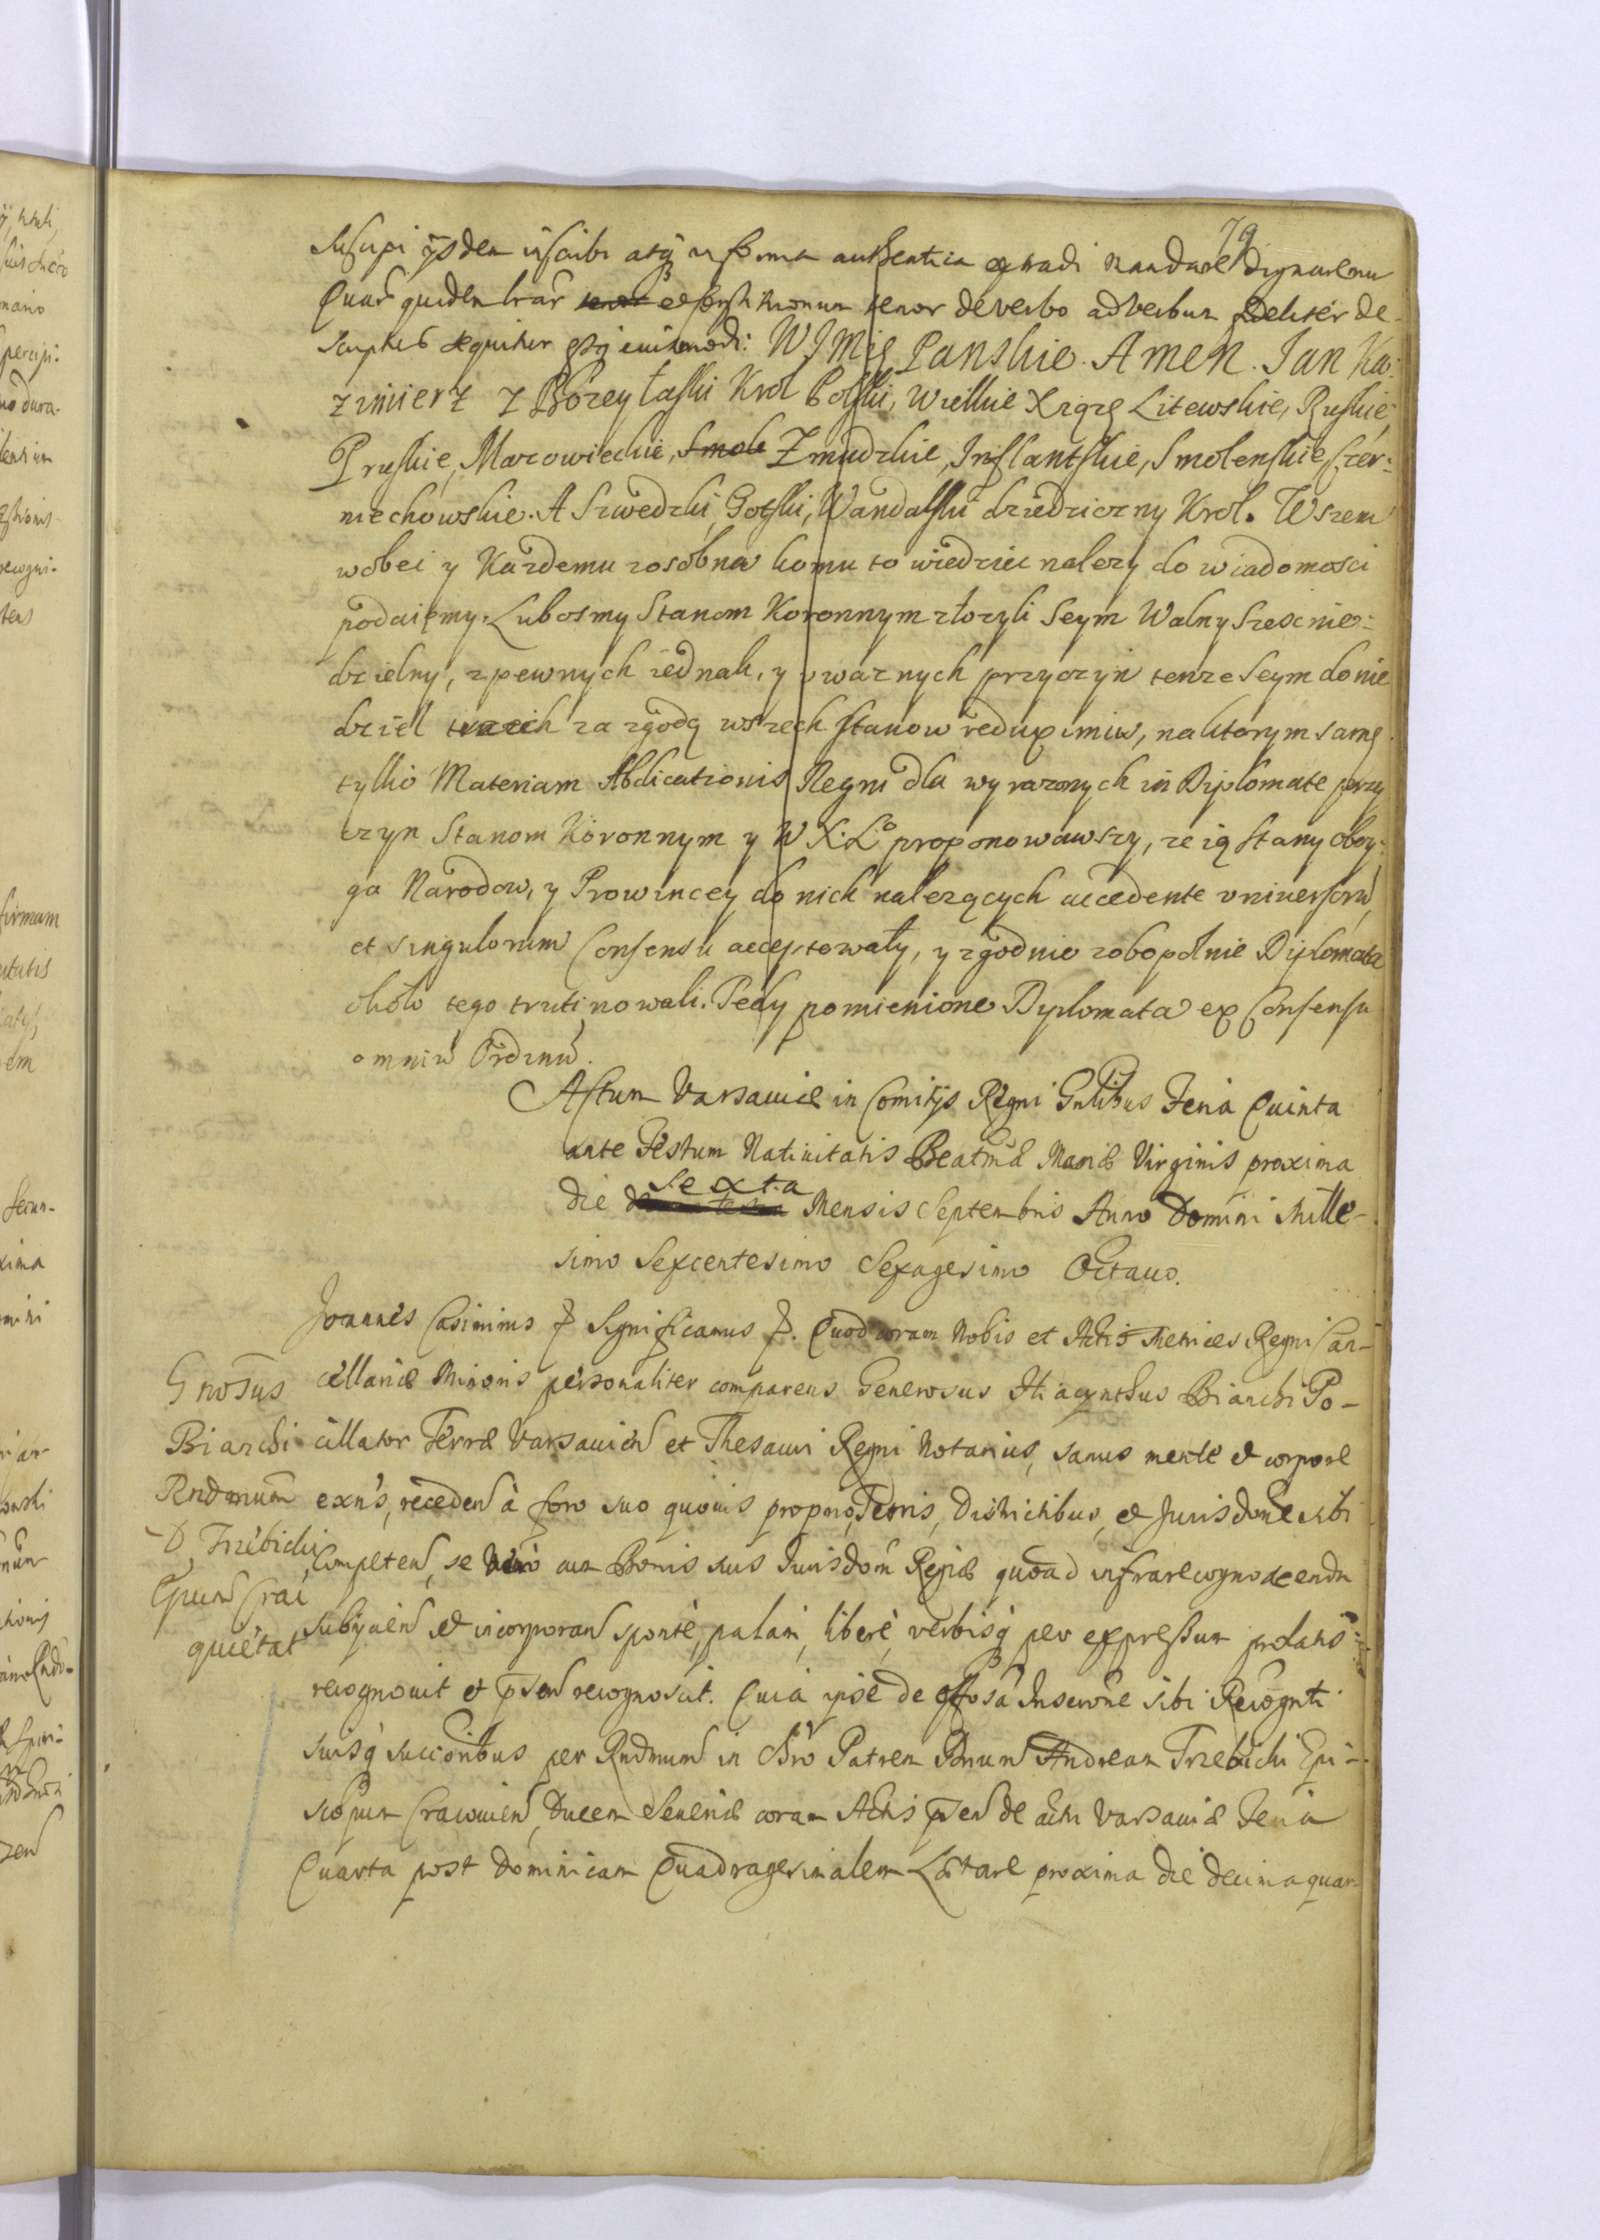 79
suscipi ijsdem inscribi atq in forma authentica extradi mandare dignaremur
Quar quidem lrar tenor tenor de verbo ad verbum fideliter de-
scriptus sequitur estq eiusmodi: W Jmię Panskie. Amen. Jan Ka:
zimierz z Bozey łaski Krol Polski, Wielkie Xiązę Litewskie, Ruskie,
Pruskie, Mazowieckie, Smole Zmudzkie, Inflantskie, Smolenskie, Czer:
niechowskie. A Szwedzki, Gotski, Wandalski dziedziczny Krol. Wszem
wobec y Kazdemu zosobna komu to wiedziec nalezy do wiadomosci
podaięmy. Lubosmy Stanom Koronnym złozyli Seym Walny Szescnie:
dzielny, z pewnych iednak, y vwaznych przyczyn tenze Seym do nie
dziel trzech za zgodą wszech stanow reduximus, na ktorym samę
tylko Materiam Abdicationis Regni dla wyrazonych in Diplomate przy
czyn Stanom Koronnym y W X. Lo proponowawszy, ze ią stany oboy:
ga Narodow, y Prowincey do nich nalezących accedente vniuersorũ,
et singulorum Consensu acceptowały, y zgodnie zobopolnie Diplomata
około tego trutinowali. Tedy pomienione Dyplomata ex Consensu
omniũ Ordinũ.
Actum Varsauiæ in Comitijs Regni Gnlibus Feria Quinta
ante Festum Natiuitatis Beatmæ Mariæ Virginis proxima
die Sexta Mensis Septembris Anno Domini Mille-
simo Sexcentesimo Sexagesimo Octauo.
Joannes Casimirus Significamus. Quod coram Nobis et Actis Metrices Regni Can-
Gnosus cellariæ Minoris personaliter comparens Generosus Hiacynthus Bianchi Po-
Bianchi cillator Terræ Varsauien et Thesauri Regni Notarius, sanus mente et corpore
Rndmum exns, receden à foro suo quouis proprio, Terris, Districtibus, et Jurisdone sibi
D, Trzebicki competen, se vero cum Bonis suis Jurisdom Regiæ quoad infrarecognoscendu
Epum Crac subijcien et incorporan sponte, palam, libere, verbisq per expressum prolatis:
quietat recognouit et psen recognoscit. Quia ipse de Inscrone sibi Recognti
suisq succoribus per Rndmum in Chro Patrem Dnum Andream Trzebicki Epi-
scopum Cracouien, Ducem Seueriæ coram Actis psen de actu Varsauiæ Feria
Quarta post Dominicam Quadragesimalem Lætare proxima die decima quar